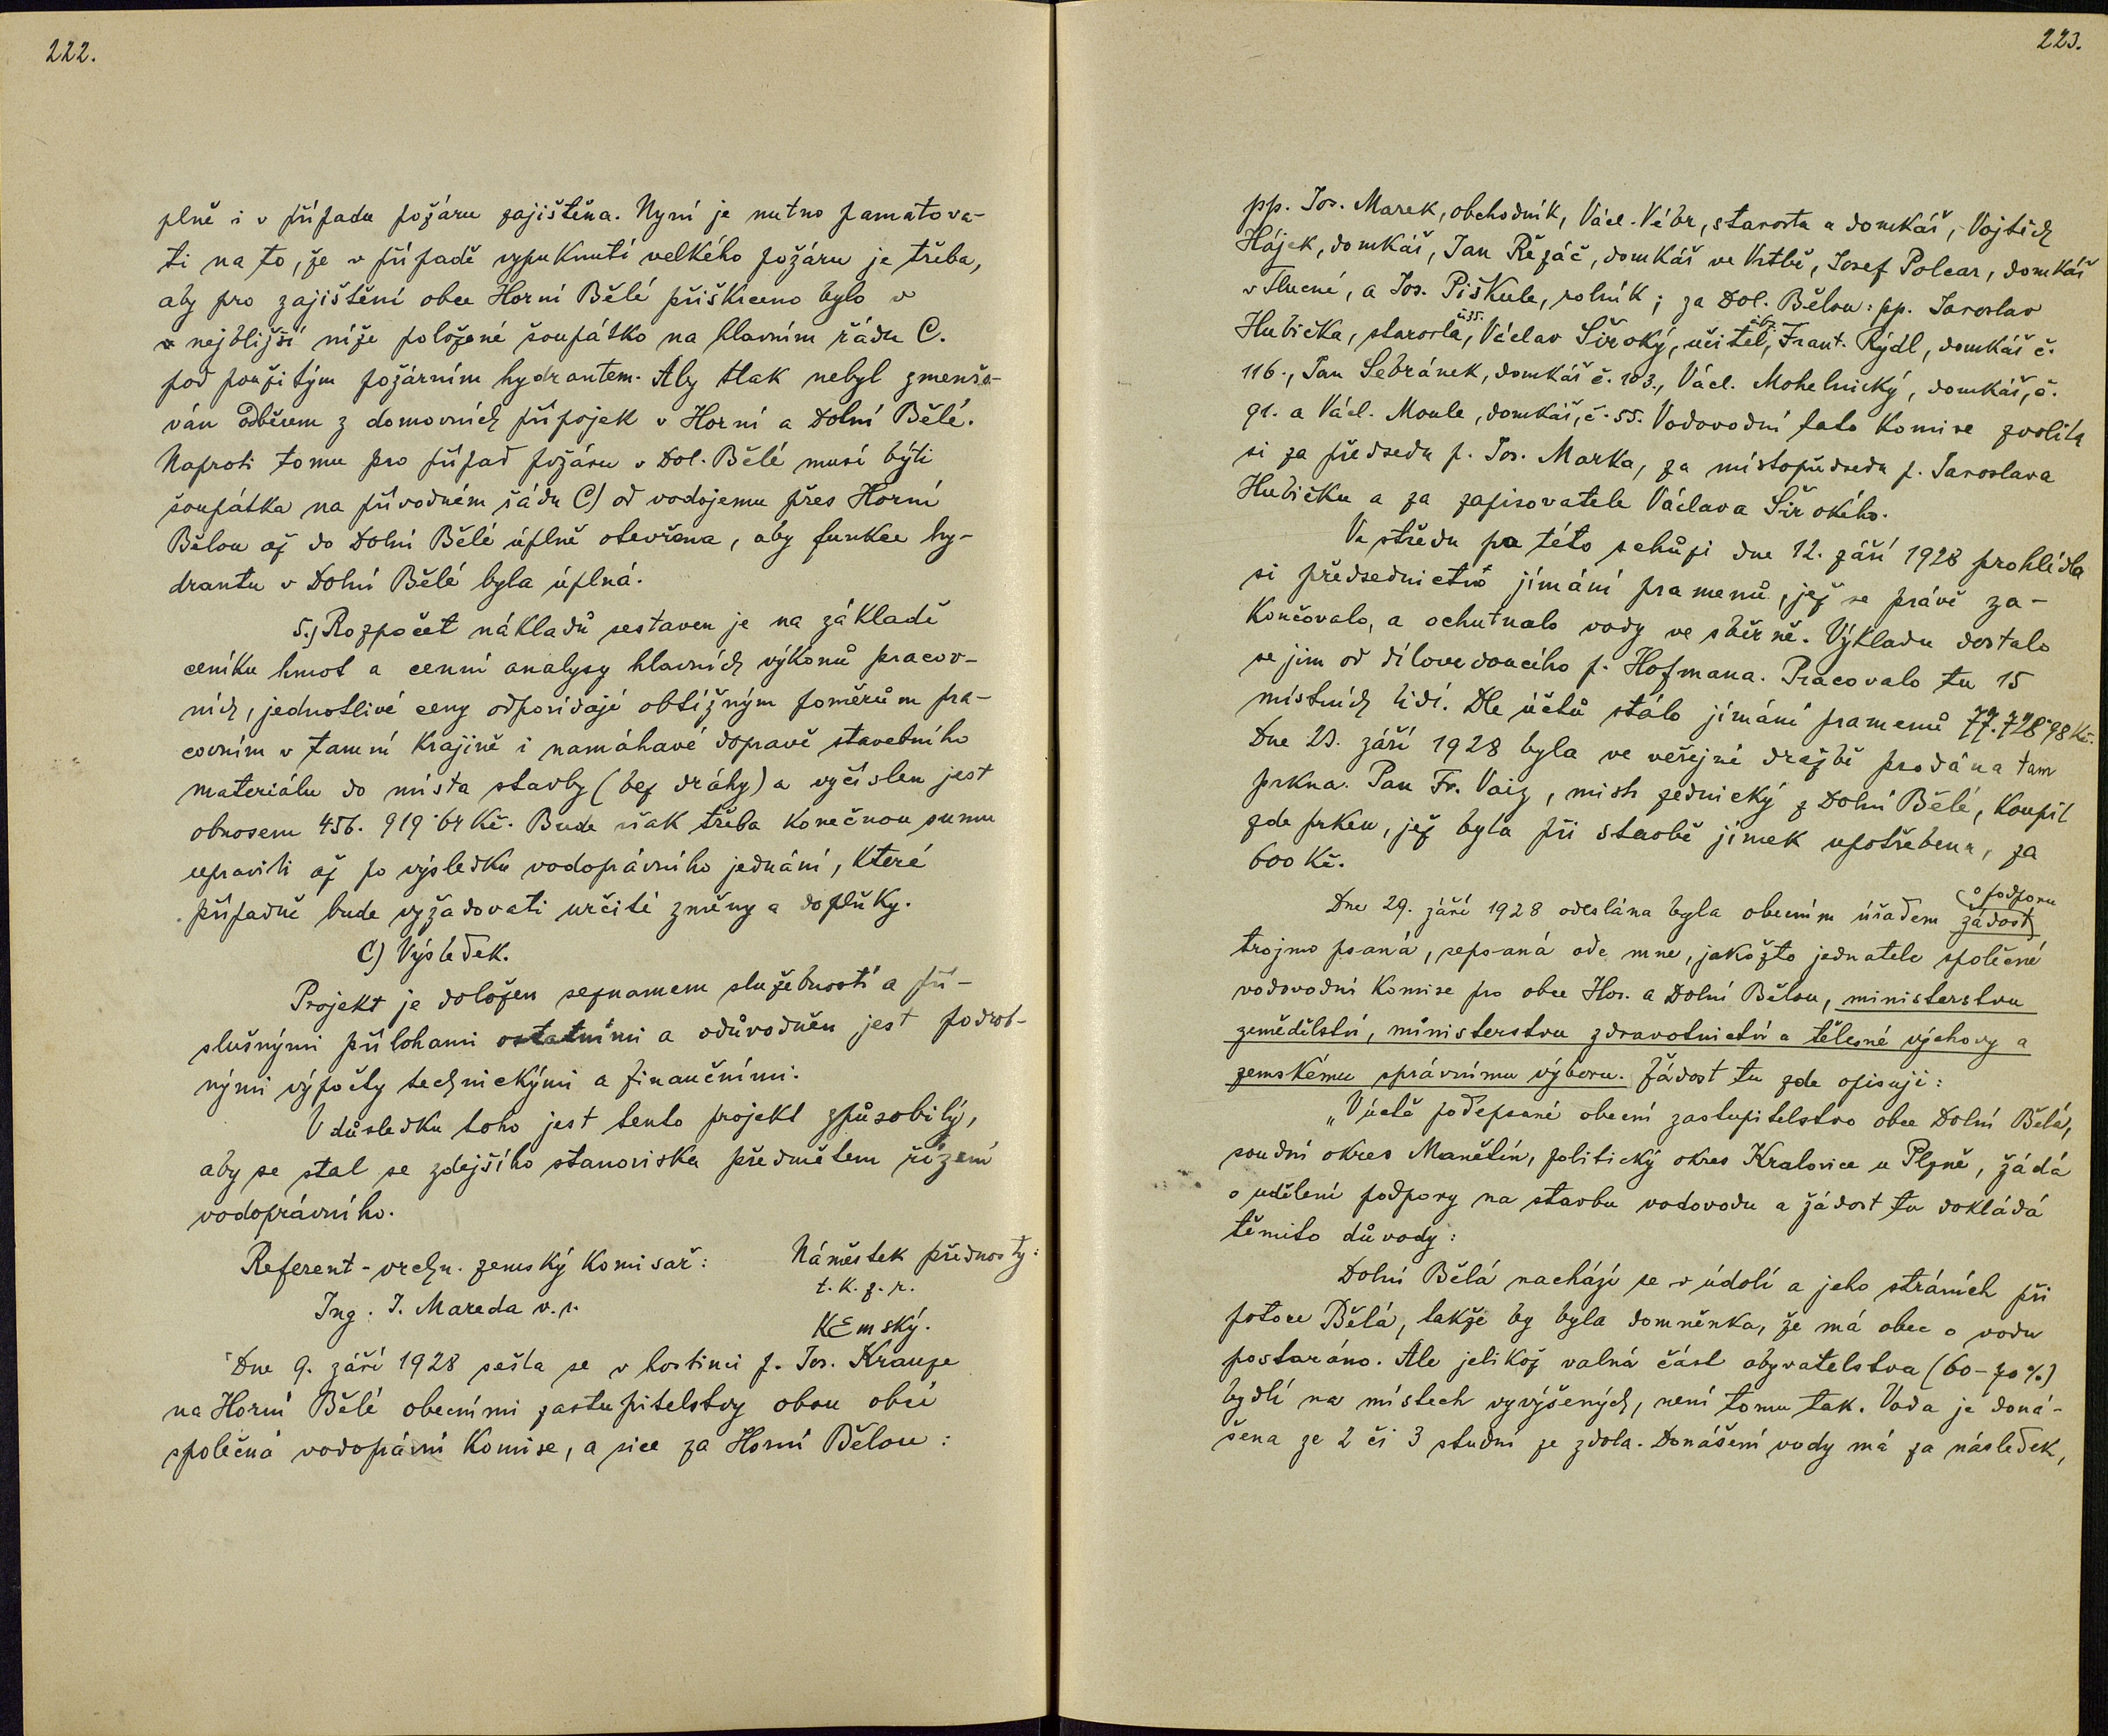 222.
plně i v případu požáru zajištěna. Nyní je nutno pamatova-
ti na to, že v případě vypuknutí velkého požáru je třeba,
aby pro zajištění obce Horní Bělé přiškrceno bylo v
nejbližší níže položené šoupátko na hlavním řádu C.
pod použitým požárním hydrantem. Aby tlak nebyl zmenšo-
ván odběrem z domovních přípojek v Horní a Dolní Bělé.
Naproti tomu pro případ požáru v Dol. Bělé musí býti
šoupátka na přívodném řádu C) od vodojemu přes Horní
Bělou až do Dolní Bělé úplně otevřena, aby funkce hy-
drantu v Dolní Bělé byla úplná.
5.) Rozpočet nákladů sestaven je na základě
ceníku hmot a cenní analysy hlavních výkonů pracov-
ních, jednotlivé ceny odpovídají obtížným poměrům pra-
covním v tamní krajině i namáhavé dopravě stavebního
materiálu do místa stavby (bez dráhy) a vyčíslen jest
obnosem 456.919·64 Kč. Bude však třeba konečnou sumu
upraviti až po výsledku vodoprávního jednání, které
případně bude vyžadovati určité změny a doplňky.
C) Výsledek.
Projekt je doložen seznamem služebností a pří-
slušnými přílohami ostatními a odůvodněn jest podrob-
nými výpočty technickými a finančními.
V důsledku toho jest tento projekt způsobilý,
aby se stal se zdejšího stanoviska předmětem řízení
vodoprávního.
Referent - vrchn. zemský komisař: Náměstek přednosty:
t. k. z. r.
Ing. J. Mareda v. r.
Kemský.
Dne 9. září 1928 sešla se v hostinci p. Jos. Krauze
na Horní Bělé obecními zastupitelstvy obou obcí
společná vodoprávní komise, a sice za Horní Bělou:
223.
pp. Jos. Marek, obchodník, Václ. Vébr, starosta a domkář, Vojtěch
Hájek, domkář, Jan Řezáč, domkář ve Vrtbě, Josef Polcar, domkář
v Tlucné, a Jos. Piškule, rolník; za Dol. Bělou: pp. Jaroslav
Hubička, starosta, č.35. Václav Široký, učitel, Frant. Rýdl, domkář č.
116., Jan Sebránek, domkář č. 103., Václ. Mohelnický, domkář, č.
91. a Václ. Moule, domkář, č. 55. Vodovodní tato komise zvolila
si za předsedu p. Jos. Marka, za místopředsedu p. Jaroslava
Hubičku a za zapisovatele Václava Širokého.
Ve středu po této schůzi dne 12. září 1928 prohlédla
si předsednictvo jímání pramenů, jež se právě za-
končovalo, a ochutnalo vody ve sběrně. Výkladu dostalo
se jim od dílovedoucího p. Hofmana. Pracovalo tu 15
místních lidí. Dle účtů stálo jímání pramenů 77.728·98 Kč.
Dne 23. září 1928 byla ve veřejné dražbě prodána tam
prkna. Pan Fr. Vaiz, mistr zednický z Dolní Bělé, koupil
zde prken, jež byla při stavbě jímek upotřebena, za
600 Kč.
Dne 29. září 1928 odeslána byla obecním úřadem žádost o podporu
trojmo psaná, sepsaná ode mne, jakožto jednatele společné
vodovodní komise pro obce Hor. a Dolní Bělou, ministerstvu
zemědělství, ministerstvu zdravotnictví a tělesné výchovy a
zemskému správnímu výboru. Žádost tu zde opisuji:
„V úctě podepsané obecní zastupitelstvo obce Dolní Bělá,
soudní okres Manětín, politický okres Kralovice u Plzně, žádá
o udělení podpory na stavbu vodovodu a žádost tu dokládá
těmito důvody:
Dolní Bělá nachází se v údolí a jeho stráních při
potoce Bělá, takže by byla domněnka, že má obec o vodu
postaráno. Ale jelikož valná část obyvatelstva (60-70%)
bydlí na místech vyvýšených, není tomu tak. Voda je doná-
šena ze 2 či 3 studní ze zdola. Donášení vody má za následek,